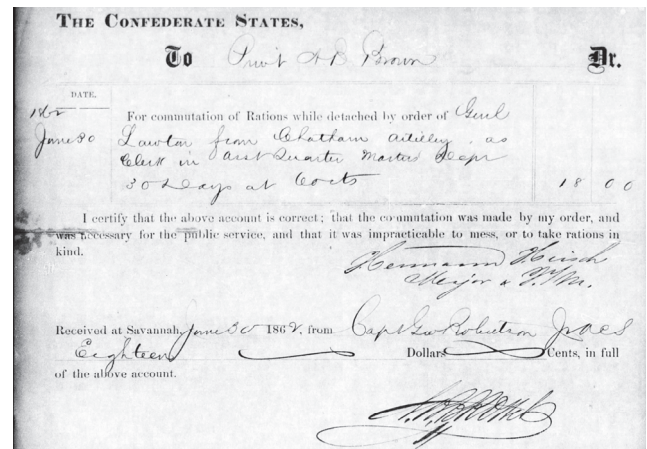 THE CONFEDERATE STATES,
To Privt A D Brown Dr.
DATE.
1862 For commutation of Rations while detached by order of Genl
June 30 Lawton from Chatham Artillery, as
Clerk in Quarter Masters Dept
30 Days at 60 cts 18 00
I certify that the above account is correct; that the commutation was made by my order, and
was necessary for the public service, and that it was impracticable to mess, or to take rations in
kind.
Hermann Hirsch
Major & Q.M.
Received at Savannah, June 30 1862, from Capt Geo Robertson Jr ACS
Eighteen Dollars Cents, in full
of the above account.